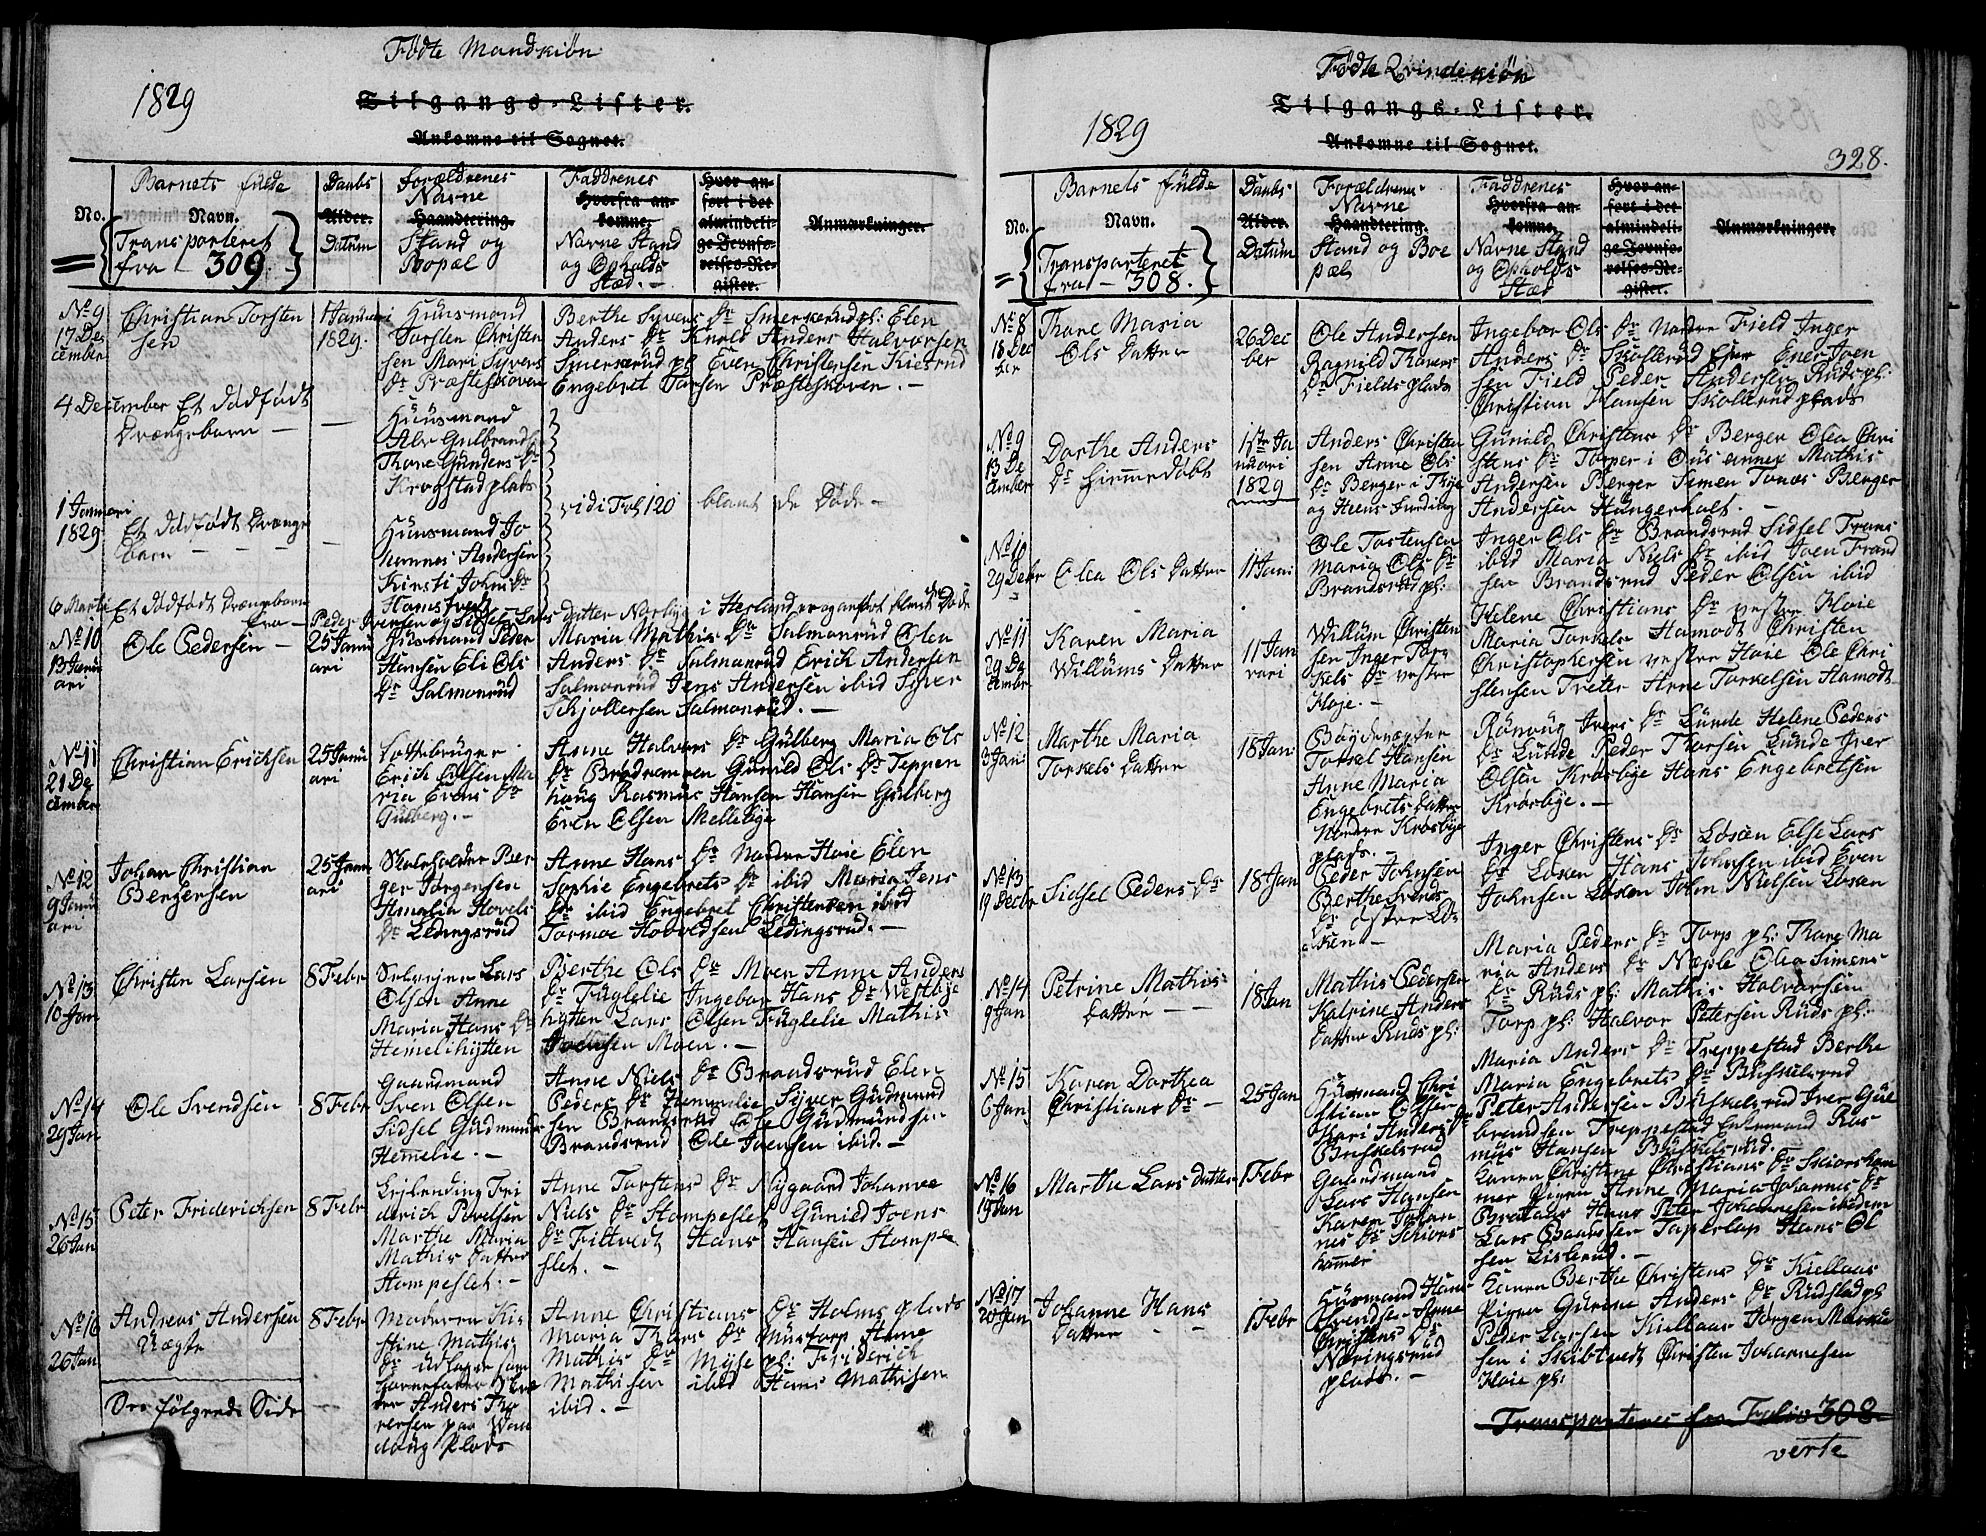 Fødte Mandkiøn
1829
Tilgangs-Lister.
Ankomne til Sognet.
No.
Barnets fulde
Navn.
Transporteret
fra - 309.
Daabs
Alder.
Datum
Forældrenes
Navne
Haandtering
Stand og
Bopæl
Faddrenes
Hvorfra an-
komne.
Navne Stand
og Opholds
Stæd. -
Hvor an-
ført i det
almindeli-
ge Jevnfø-
relses-Re-
gister.
Anmærkninger.
No 9
17 De
cember
Christian Torsten
sen
1 Januari
1829.
Huusmand
Torsten Christen
sen Mari Syvers
Dr Præsteskoven
Berthe Syvers Dr Smerkerud pl: Elen
Anders Dr Knold Anders Halvorsen
Smerkerud pl Even Christensen Kiesrud
Engebret Torsen Præsteskoven. -
4 December Et dødfødt
Drængebarn -
Huusmand
Abr Gulbrands
Thore Gunders Dr
Krogstad plads
1 Januari
1829
Et dødfødt Drænge
barn - - -
Huusmand Jo
hannes Andersen
Kirsti Johns Dr
vidi Fol 120 blant de Døde -
6 Marti Et dødfødt Drængebarn
fra - Peder Iversen og Sidsel Lars Datter Narbye i Herland er og anført blandt de Døde
No 10
13 Janu
ari
Ole Pedersen -
25 Janu
ari
Huusmand Peder
Hansen Eli Ols
Dr Salmonrud
Maria Mathis Dr Salmonrud Olea
Anders Dr Salmonrud Erich Andersen
Salmonrud Jens Andersen ibid Syver
Schjoltersen Salmonrud. -
No 11
21 De
cember
Christian Erichsen
25 Janu
ari
Lottebruger
Erich Olsen Ma
ria Evens Dr
Gulberg. -
Anne Halvors Dr Gulberg Maria Ols
Dr Brødremoen Gunild Ols Dr Teppen
houg Rasmus Hansen Hansen Gulberg
Even Olsen Mellebye
No 12
9 Janu
ari
Johan Christian
Bergersen
25 Janu
ari
Skoleholder Ber
ger Jørgensen
Amalia Hovels
Dr Ledingsrud
Anne Hans Dr Nordre Hoie Elen
Sophie Engebrets Dr ibid Maria Jens
Dr ibid Engebret Christensen ibid
Tormoe Hovelsen Ledingsrud. -
No 13
10 Jan
Christen Larsen
8 Febr
Selveier Lars
Olsen Anne
Maria Hans Dr
Hemelihytten
Berthe Ols Dr Moen Anne Anders
Dr Fuglelie Ingebor Hans Dr Westbye
hytten Lars Olsen Fuglelie Mathis
Moen. -
No 14
29 Jan
Ole Svendsen
8 Febr
Gaardmand
Sven Olsen
Sidsel Gudmunds
Hemelie. -
Anne Niels Dr Brandsrud Elen
Peders Dr Hemmelie Syver Gudmund
sen Brandsrud Ole Gudmundsen
Brandsrud Ole Joensen ibid. -
No 15
26 Jan
Peter Friderichsen
8 Febr
Leylending Fri
derich Povelsen
Marthe Maria
Mathis Datter
Stompeslet. -
Anne Torstens Dr Nygaard Johanne
Niels Dr Stompeslet Gunild Joens
Dr Fittvedt Hans Hansen Stompe
slet. -
No 16
26 Jan
Andreas Andersen
Uægte
See følgende Side
8 Febr
Moderen Kir
stine Mathis
Dr udlagt som
Barnefader
Anders Tho
resen paa Van
doug Plads
Anne Christians Dr Holms plads
Maria Thors Dr Mustorp Anne
Mathis Dr Myse pl: Friderich
Mathisen ibid Hans Mathisen
ibid. -
Fødte Qvindekiøn
1829
328.
Tilgangs-Lister.
Ankomne til Sognet.
No.
Barnets fulde
Navn.
Transporteret
fra - 308.
Daabs
Alder.
Datum
Forældrenes
Navne
Haandtering.
Stand og Boe
pæl
Faddrenes
Hvorfra an-
komne.
Navne Stand
og Opholds
Stæd
Hvor an-
ført i det
almindeli-
ge Jevnfø-
relses-Re-
gister.
Anmærkninger.
No 8
18 Dec
ber
Thore Maria
Ols Datter
26 Dec
ber
Ole Andersen
Ragnild Thores
Dr Fields plads
Ingebor Ols Dr Nordre Field Inger
Anders Dr Skollerud Ener Joen
sen Field Peder Andersen Ruds pl:
Christian Hansen Skollerud plads
No 9
13 De
cember
Dorthe Anders
Dr hiemmedøbt
1ste Ja
nuari
1829
Anders Christen
sen Anne Ols
Dr Berger i Trye
Gunild Christens Dr Berger Olea Chri
stens Dr Torper i Ous annex Mathis
Andersen Berger Simen Tones Berger
Andersen Hungerholt. -
No 10
29 Decbr
Olea Ols Datter
11 Jani
Ole Torstensen
Maria Ols Dr
Brandsrud pl:
Inger Ols Dr Brandsrud Sidsel Frans
ibid Maria Niels Dr ibid Joen Frand
sen Brandsrud Peder Olsen ibid
No 11
29 De
cember
Karen Maria
Willums Datter
11 Jan
vari
Willum Christen
sen Inger Tor
kels Dr vestre
Hoje. -
Helene Christians Dr vestre Hoie
Maria Torkels Hamodt Christen
Christophersen vestre Hoie Ole Chri
stensen Treter Arne Torkelsen Hamodt
No 12
3 Jani
Marthe Maria
Torkels Datter
18 Jan
Torkel Hansen
Anne Maria
Engebrets Datter
Nordre Krosbye
plads. -
Rønnoug Ivers Dr Lunde Helene Peders
Dr Lunde Peder Thorsen Lunde Iver
Olsen Krosbye Hans Engebretsen
Krosbye. -
No 13
19 Decbr
Sidsel Peders Dr
18 Jan
Peder Johnsen
Berthe Svends
Dr østre Løs
aken -
Inger Christens Dr Løsen Else Lars
Dr Løsen Hans Johnsen ibid Even
Johnsen Løsen John Nielsen Løsen
No 14
9 Jan
Petrine Mathis
Datter - -
18 Jan
Mathis Pedersen
Katrine Anders
Datter Ruds pl:
Maria Peders Dr Torp pl: Thore Ma
ria Anders Dr Næple Olea Simens
Dr Ruds pl: Mathis Halvorsen
Torp pl: Halvor Petersen Ruds pl:
No 15
6 Jan
Karen Dorthea
Christians Dr -
25 Jan
Husmand Chri
stian Olsen
Kari Anders Dr
Buskelsrud
Maria Anders Dr Treppestad Berthe
Maria Engebrets Dr Buskelsrud
Peter Andersen Buskelsrud Iver Gul
brandsen Treppestad Enkemand Ras
mus Hansen Buskelsrud.
No 16
19 Jan
Marthe Lars Datter
1 Febr
Gaardmand
Lars Hansen
Karen Johan
nes Dr Schiors
hamer
Konen Christine Christians Dr Skiorsham
mer Pigen Anne Maria Johannes Dr
Brataas Hans Peter Johannesen ibidem
Lars Baardsen Taperlop Hans Ol
sen Lislerud. -
No 17
20 Jan
Johanne Hans
Datter - -
1 Febr
Husmand Hans
Svendsen Anne
Christens Dr
Næringsrud
plads. -
Konen Berthe Christens Dr Kiellaas
Pigen Gurine Anders Dr Rudstad pl
Peder Larsen Kiellaas Jørgen Marcu
sen i Skibtvedt Christen Johannesen
Hoie pl:
Transporteres fra Folio 308
verte